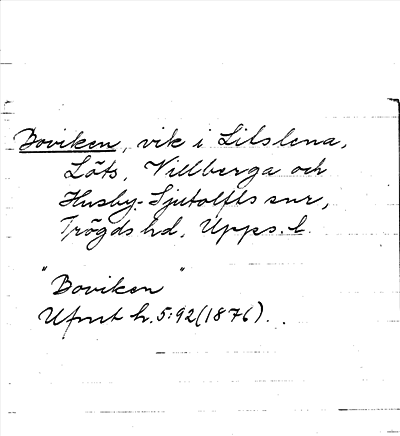 Boviken, vik i Litslena,
Löts, Villberga och
Husby-Sjutolfts snr,
Trögds hd, Upps. l.
"Boviken"
Ufmt h. 5:92 (1876).